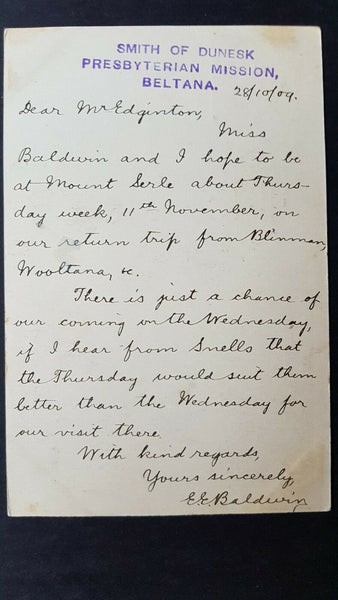 SMITH OF DUNESK
PRESBYTERIAN MISSION,
BELTANA.
28/10/09.
Dear Mr Edginton,
Miss
Baldwin and I hope to be
at Mount Serle about Thurs-
day week, 11th November, on
our return trip from Blinman,
Wooltana, &c.
There is just a chance of
our coming on the Wednesday,
if I hear from Snells that
the Thursday would suit them
better than the Wednesday for
our visit there.
With kind regards,
Yours sincerely,
E.E. Baldwin